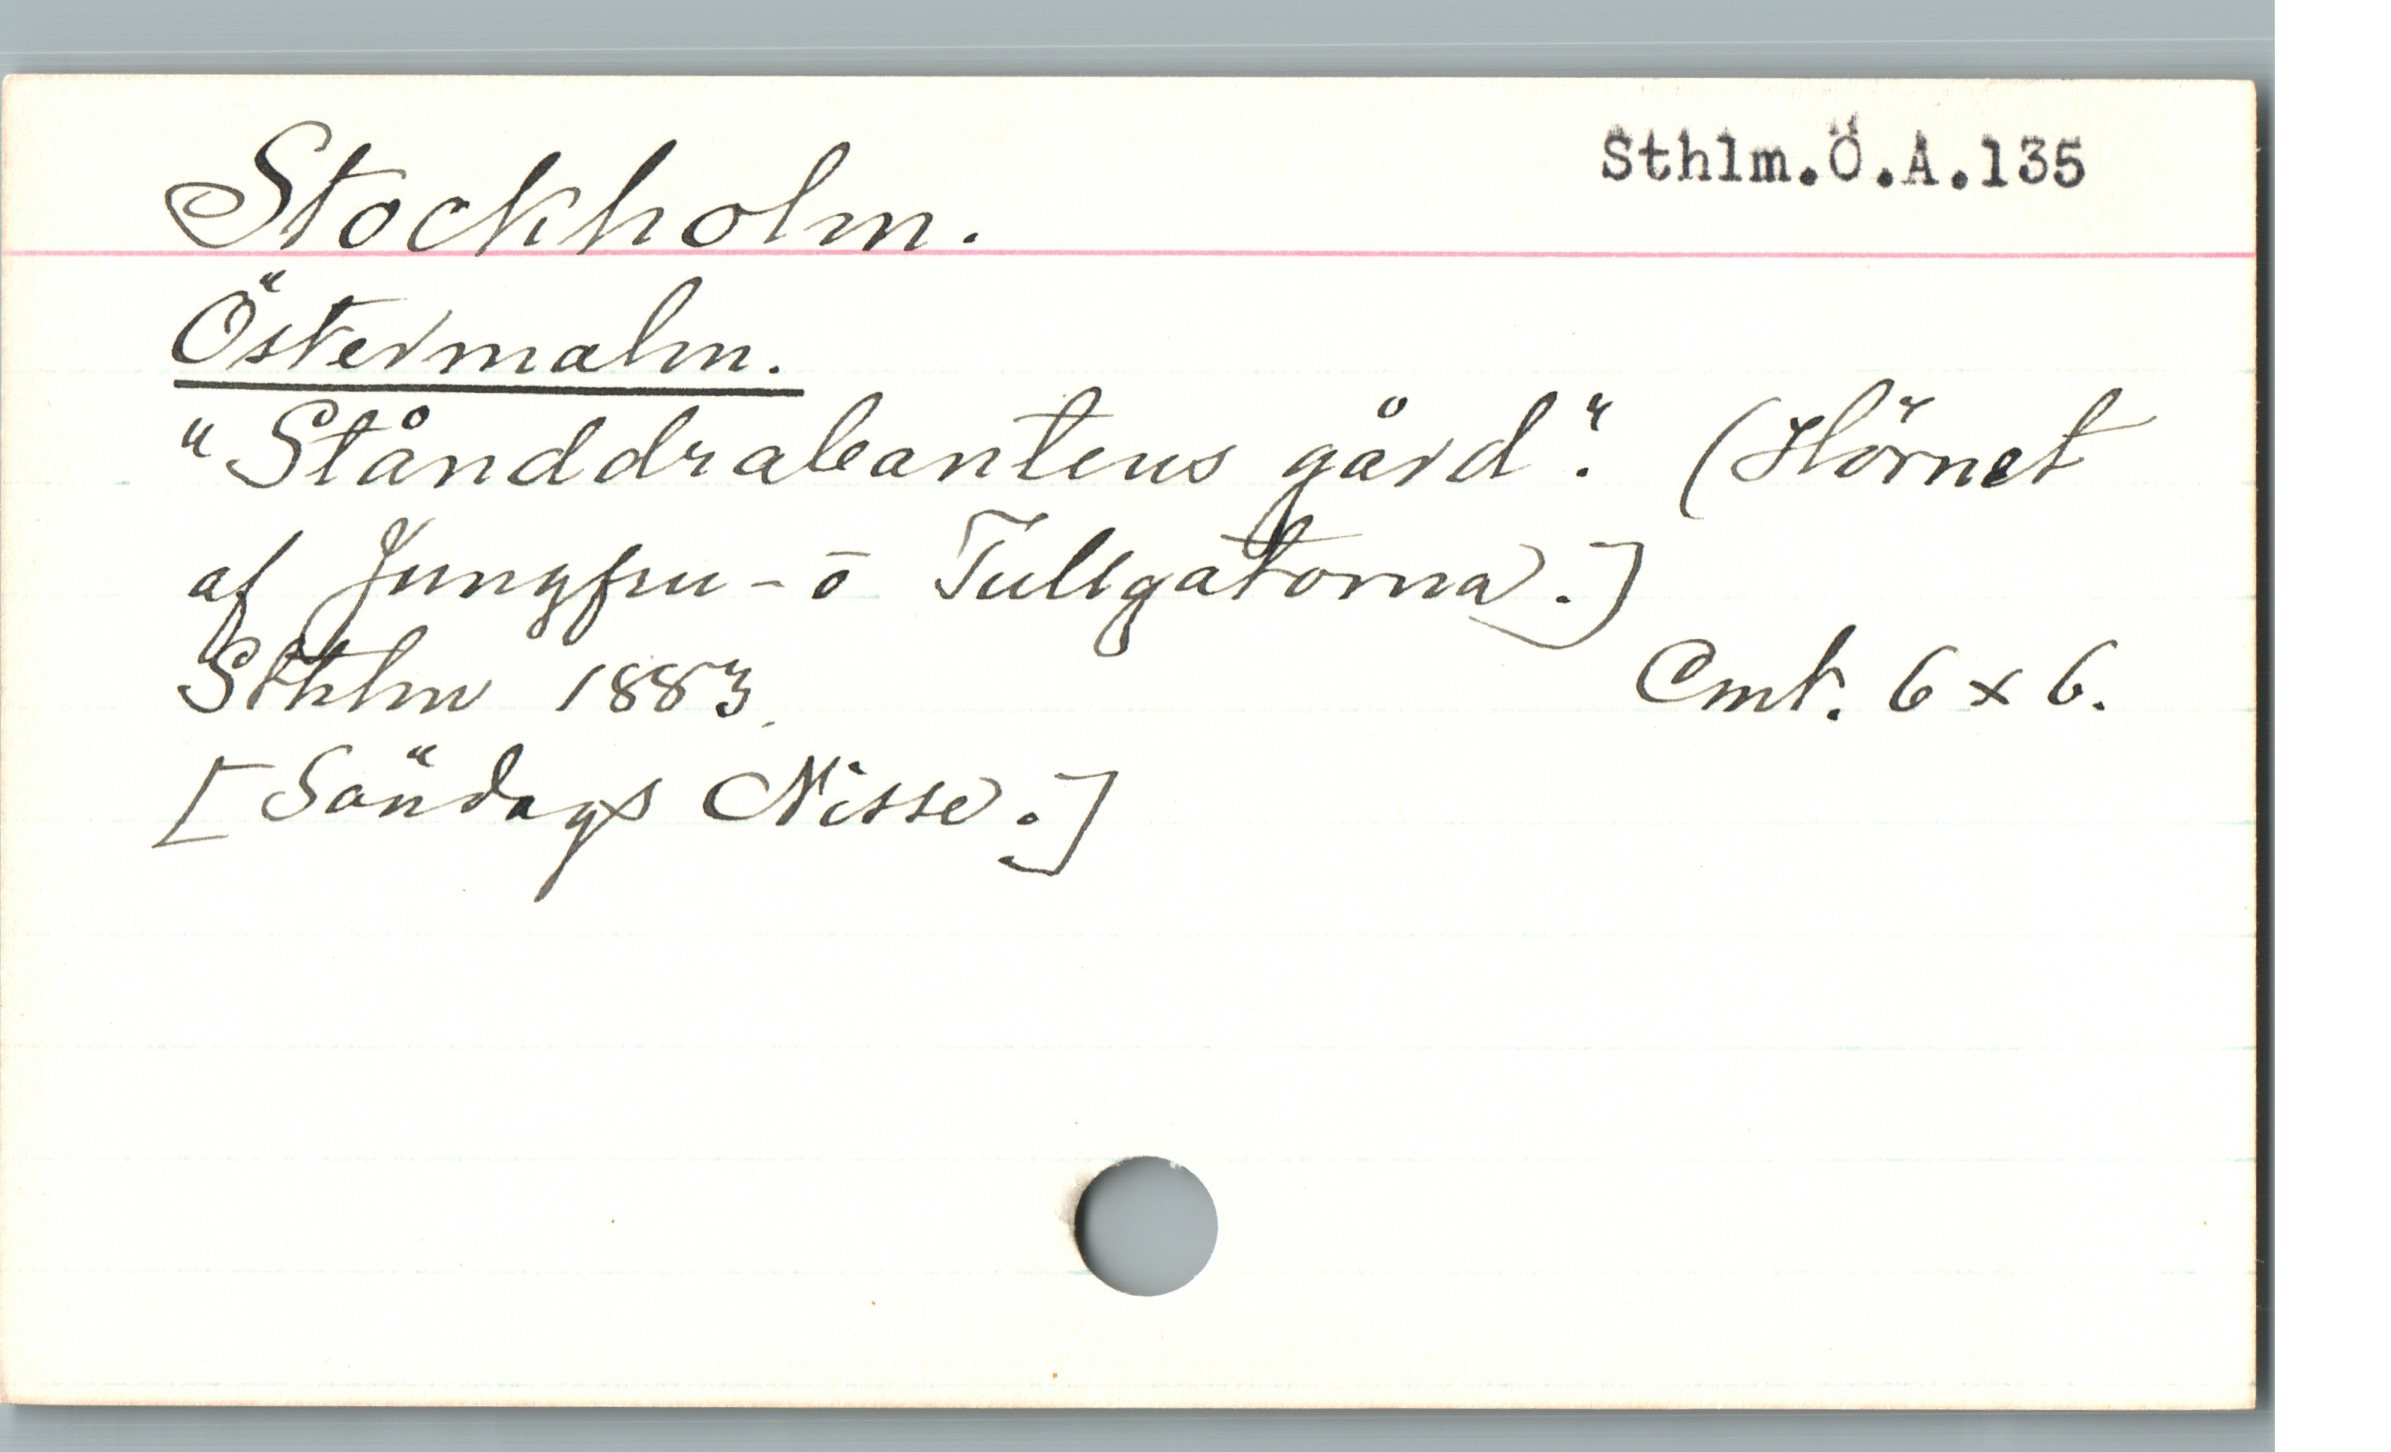 Stockholm.
Sthlm.Ö.A.135
Östermalm.
"Ståndrabantens gård". (Hörnet
af Jungfru- o Tullgatorna.]
Sthlm 1883. Cmt. 6 x 6.
[Söndags Nisse.]